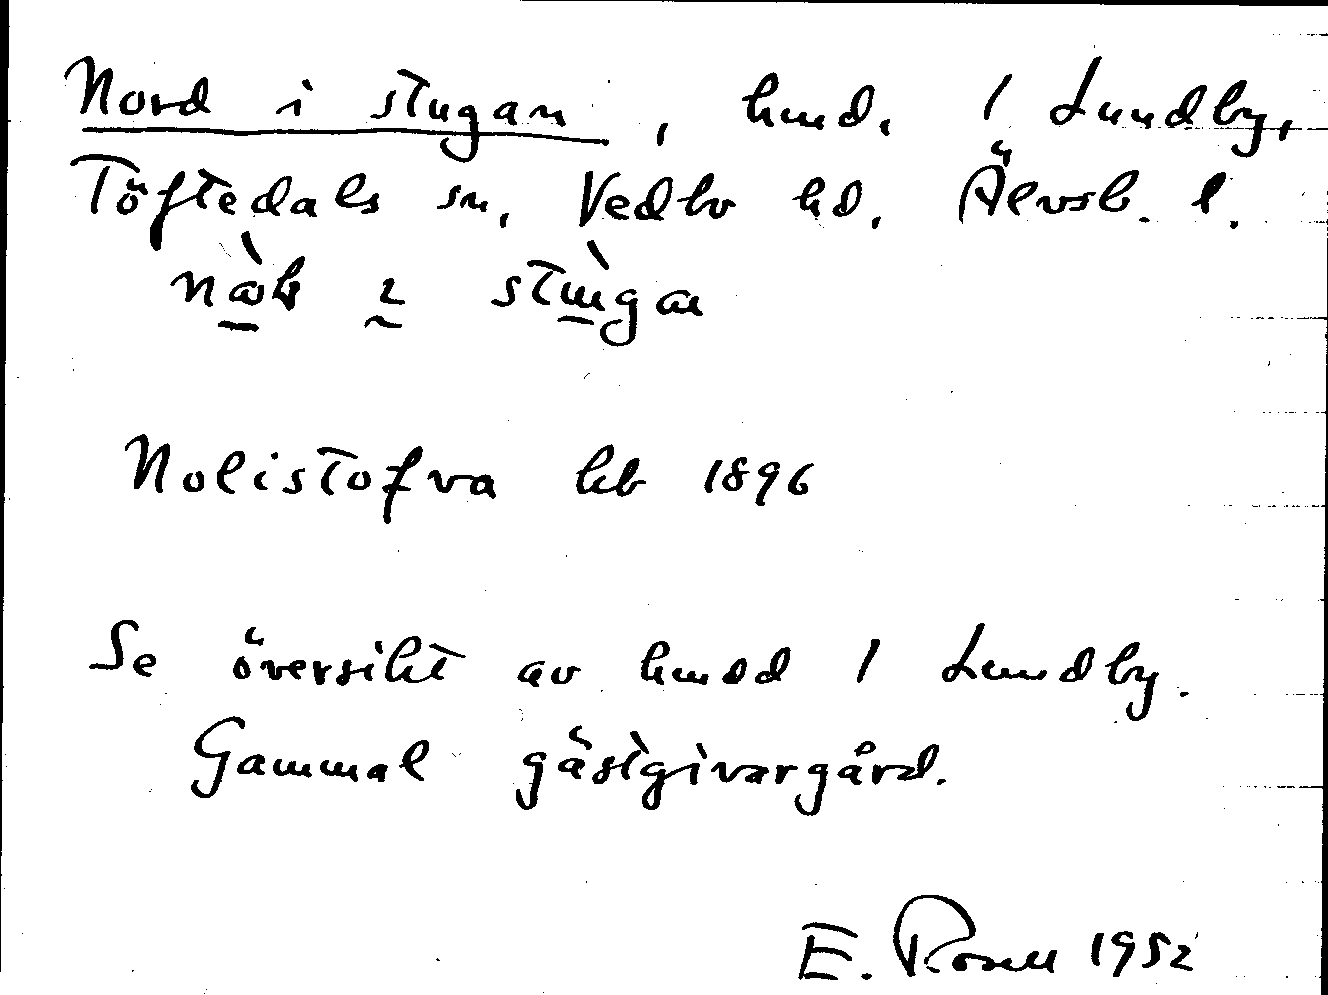 Nord i stugan, hmd. 1 Lundby,
Töftedals sn, Vedbo hd, Älvsb. l.
Nolistofva kb 1896
Se översikt av hmdd 1 Lundby.
Gammal gästgivargård.
E. Rosell 1952